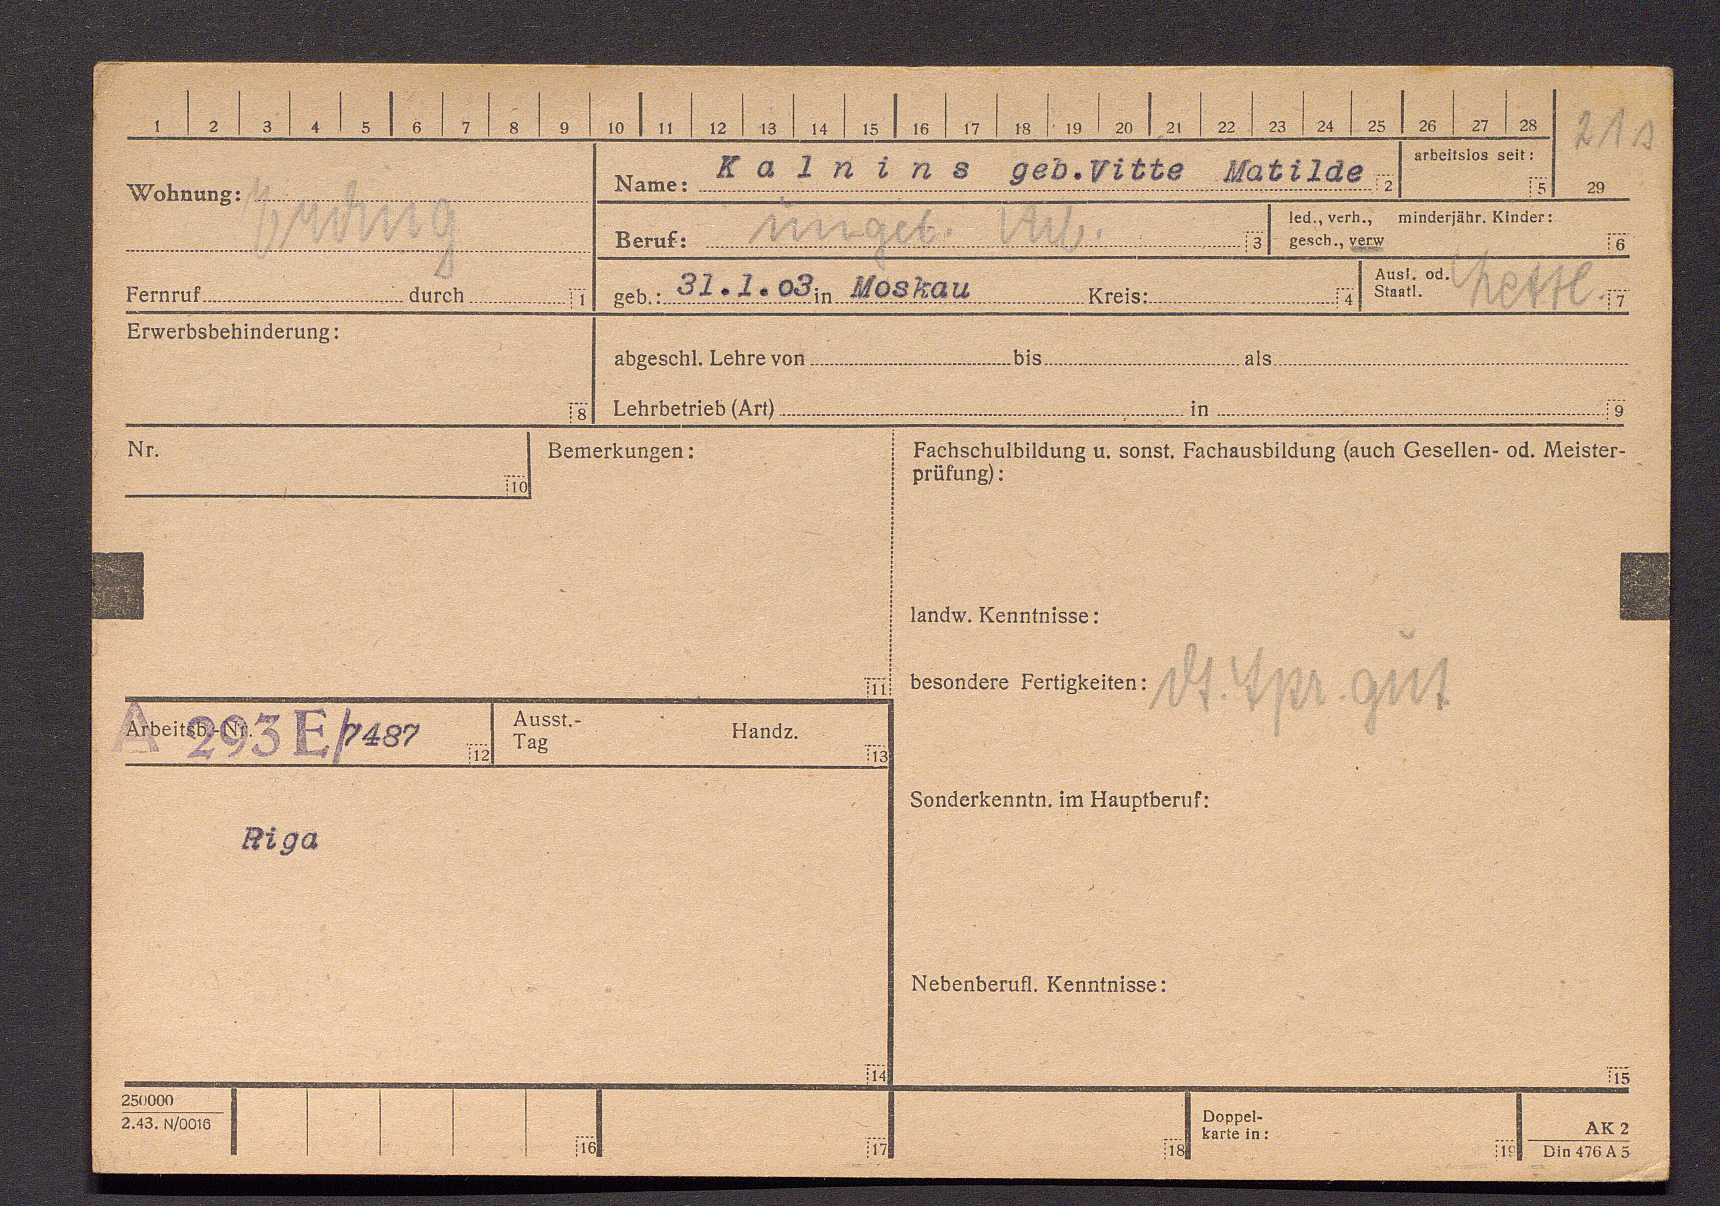 1 2 3 4 5 6 7 8 9 10 11 12 13 14 15 16 17 18 19 20 21 22 23 24 25 26 27 28
Wohnung: Erding
Name: Kalnins geb.Vitte Matilde 2
arbeitslos seit: 5
29
Beruf: ungel. Arb. 3
led., verh., minderjähr. Kinder:
gesch., verw 6
Fernruf durch 1
geb.: 31.1.03 in Moskau Kreis: 4
Ausl. od.
Staatl. lettl. 7
Erwerbsbehinderung:
8
abgeschl. Lehre von bis als
Lehrbetrieb (Art) in 9
Nr.
10
Bemerkungen:
11
Fachschulbildung u. sonst. Fachausbildung (auch Gesellen- od. Meister-
prüfung):
landw. Kenntnisse:
besondere Fertigkeiten: dt. Spr. gut
Arbeitsb.-Nr. A 293 E/7487 12
Ausst.-
Tag
Handz.
13
Riga
14
Sonderkenntn. im Hauptberuf:
Nebenberufl. Kenntnisse:
15
250000
2.43. N/0016
16
17
18
Doppel-
karte in:
19
AK 2
Din 476 A 5